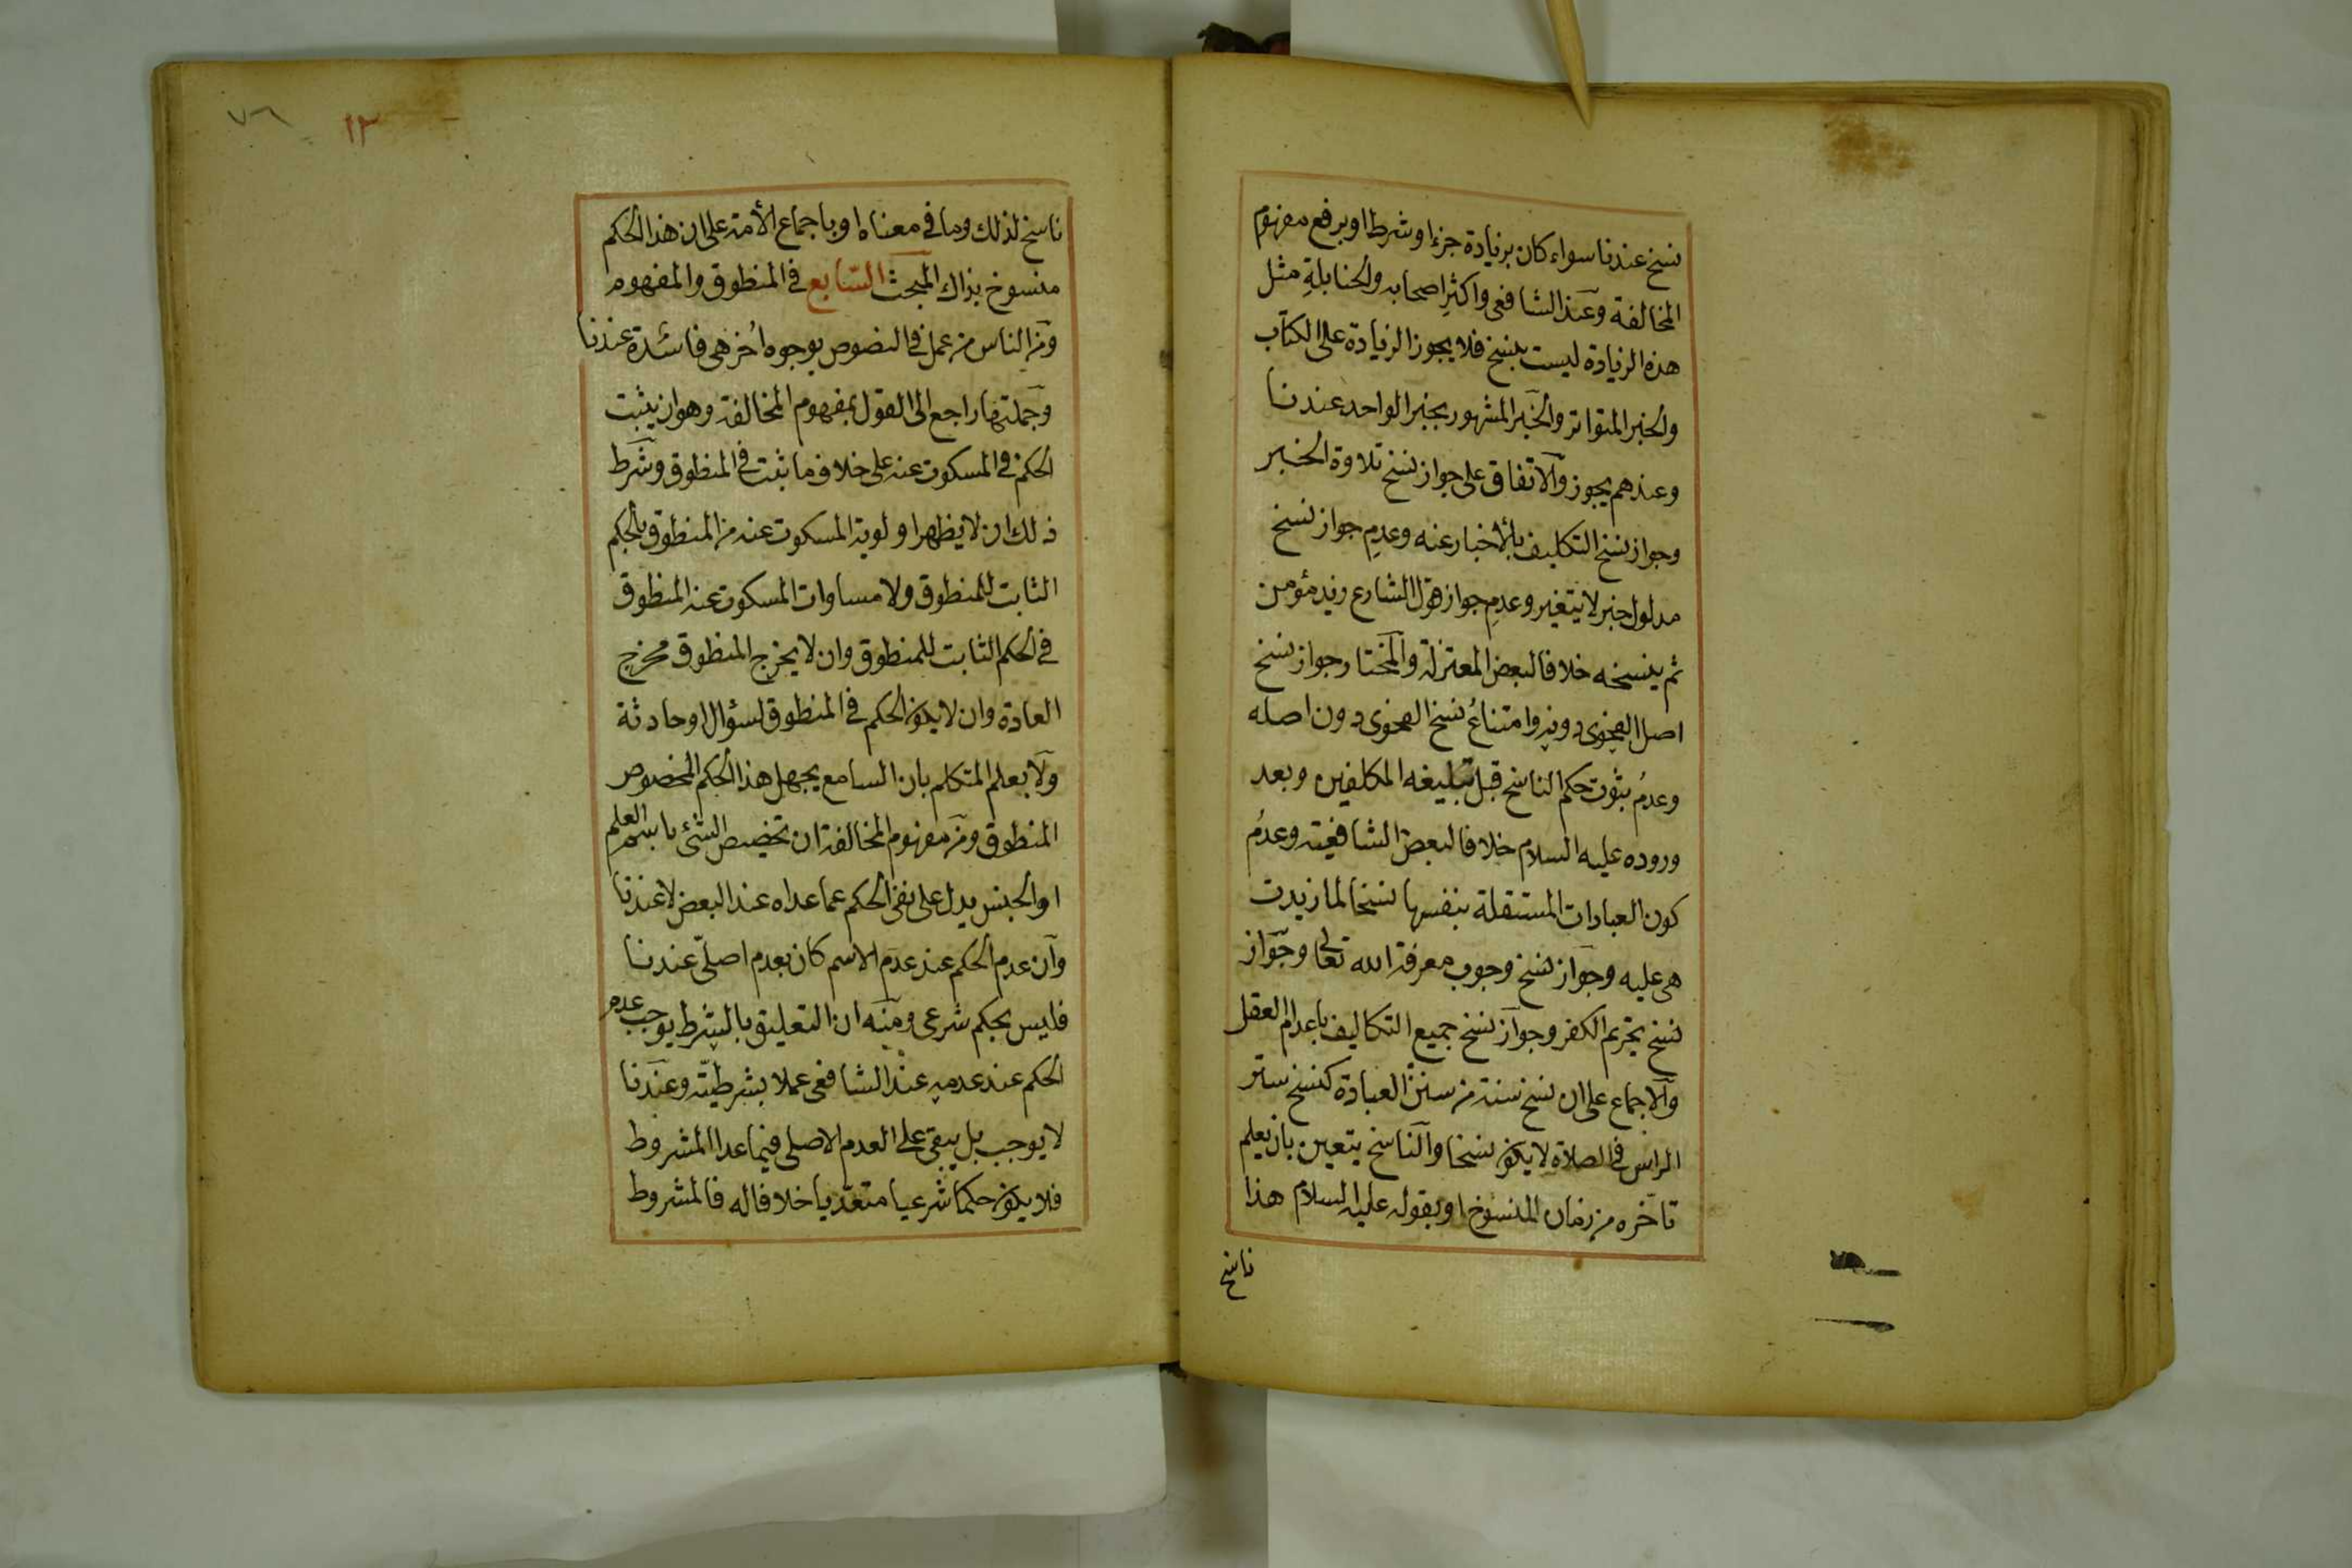 نسخ عندنا سواء كان بزيادة جزء او شرط او برفع مفهوم
المخالفة وعند الشافعى واكثر اصحابه والحنابلة مثل
هذه الزيادة ليست بنسخ فلا يجوز الزيادة على الكتاب
والخبر المتواتر والخبر المشهور بخبر الواحد عندنا
وعندهم يجوز والاتفاق على جواز نسخ تلاوة الخبر
وجواز نسخ التكليف بالأخبار عنه وعدم جواز نسخ
مدلول خبر لا يتغير وعدم جواز قول الشارع زيد مؤمن
ثم ينسخه خلافا لبعض المعتزلة والمختار جواز نسخ
اصل الفحوى دونه وامتناع نسخ الفحوى دون اصله
وعدم ثبوت حكم الناسخ قبل تبليغه المكلفين وبعد
وروده عليه السلام خلافا لبعض الشافعية وعدم
كون العبادات المستقلة بنفسها نسخا لما زيدت
هى عليه وجواز نسخ وجوب معرفة الله تعالى وجواز
نسخ تحريم الكفر وجواز نسخ جميع التكاليف باعدام العقل
والاجماع على ان نسخ سنة من سنن العبادة كنسخ ستر
الراس فى الصلاة لا يكون نسخا والناسخ يتعين بان يعلم
تاخره من زمان المنسوخ او بقوله عليه السلام هذا
ناسخ
٧٦ ١٣
ناسخ لذلك وما فى معناه او باجماع الأمة على ان هذا الحكم
منسوخ بذاك المبحث السابع فى المنطوق والمفهوم
ومن الناس من عمل فى النصوص بوجوه اخر هى فاسدة عندنا
وجملتها راجع الى القول بمفهوم المخالفة وهو ان يثبت
الحكم فى المسكوت عنه على خلاف ما ثبت فى المنطوق وشرط
ذلك ان لا يظهر اولوية المسكوت عنه من المنطوق بالحكم
الثابت للمنطوق ولا مساوات المسكوت عنه المنطوق
فى الحكم الثابت للمنطوق وان لا يخرج المنطوق مخرج
العادة وان لا يكون الحكم فى المنطوق لسؤال او حادثة
ولا يعلم المتكلم بان السامع يجهل هذا الحكم المخصوص
المنطوق ومن مفهوم المخالفة ان تخصيص الشئ باسم العلم
او الجنس يدل على نفى الحكم عما عداه عند البعض لا عندنا
وان عدم الحكم عند عدم الاسم كان بعدم اصلى عندنا
فليس بحكم شرعى ومنه ان التعليق بالشرط يوجب عدم
الحكم عند عدمه عند الشافعى عملا بشرطيته وعندنا
لا يوجب بل يبقى على العدم الاصلى فيما عدا المشروط
فلا يكون حكما شرعيا متعديا خلافا له فالمشروط